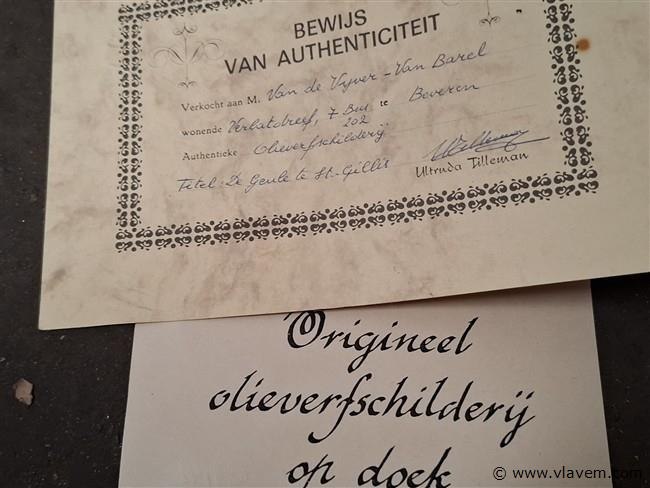 BEWIJS
VAN AUTHENTICITEIT
Verkocht aan M. Van de Vyver - Van Barel
wonende Verbatdreef, 7 Bus te Beveren
202
Authentieke Olieverfschilderij
Titel: De Geule te St-Gillis
Ultruda Tilleman
Origineel
olieverfschilderij
op doek
© www.vlavem.com